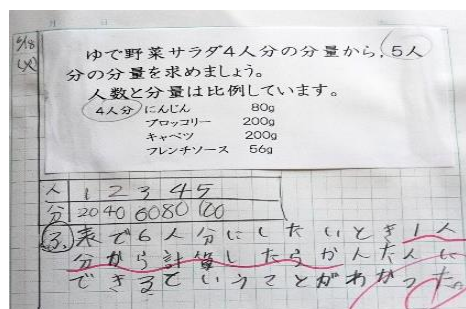 5/18
(火)
ゆで野菜サラダ4人分の分量から,5人
分の分量を求めましょう。
人数と分量は比例しています。
4人分 にんじん 80g
ブロッコリー 200g
キャベツ 200g
フレンチソース 56g
人 1 2 3 4 5
分 20 40 60 80 100
ふ 表で6人分にしたいとき1人
分から計算したらかんたんに
できるていうことがわかった。